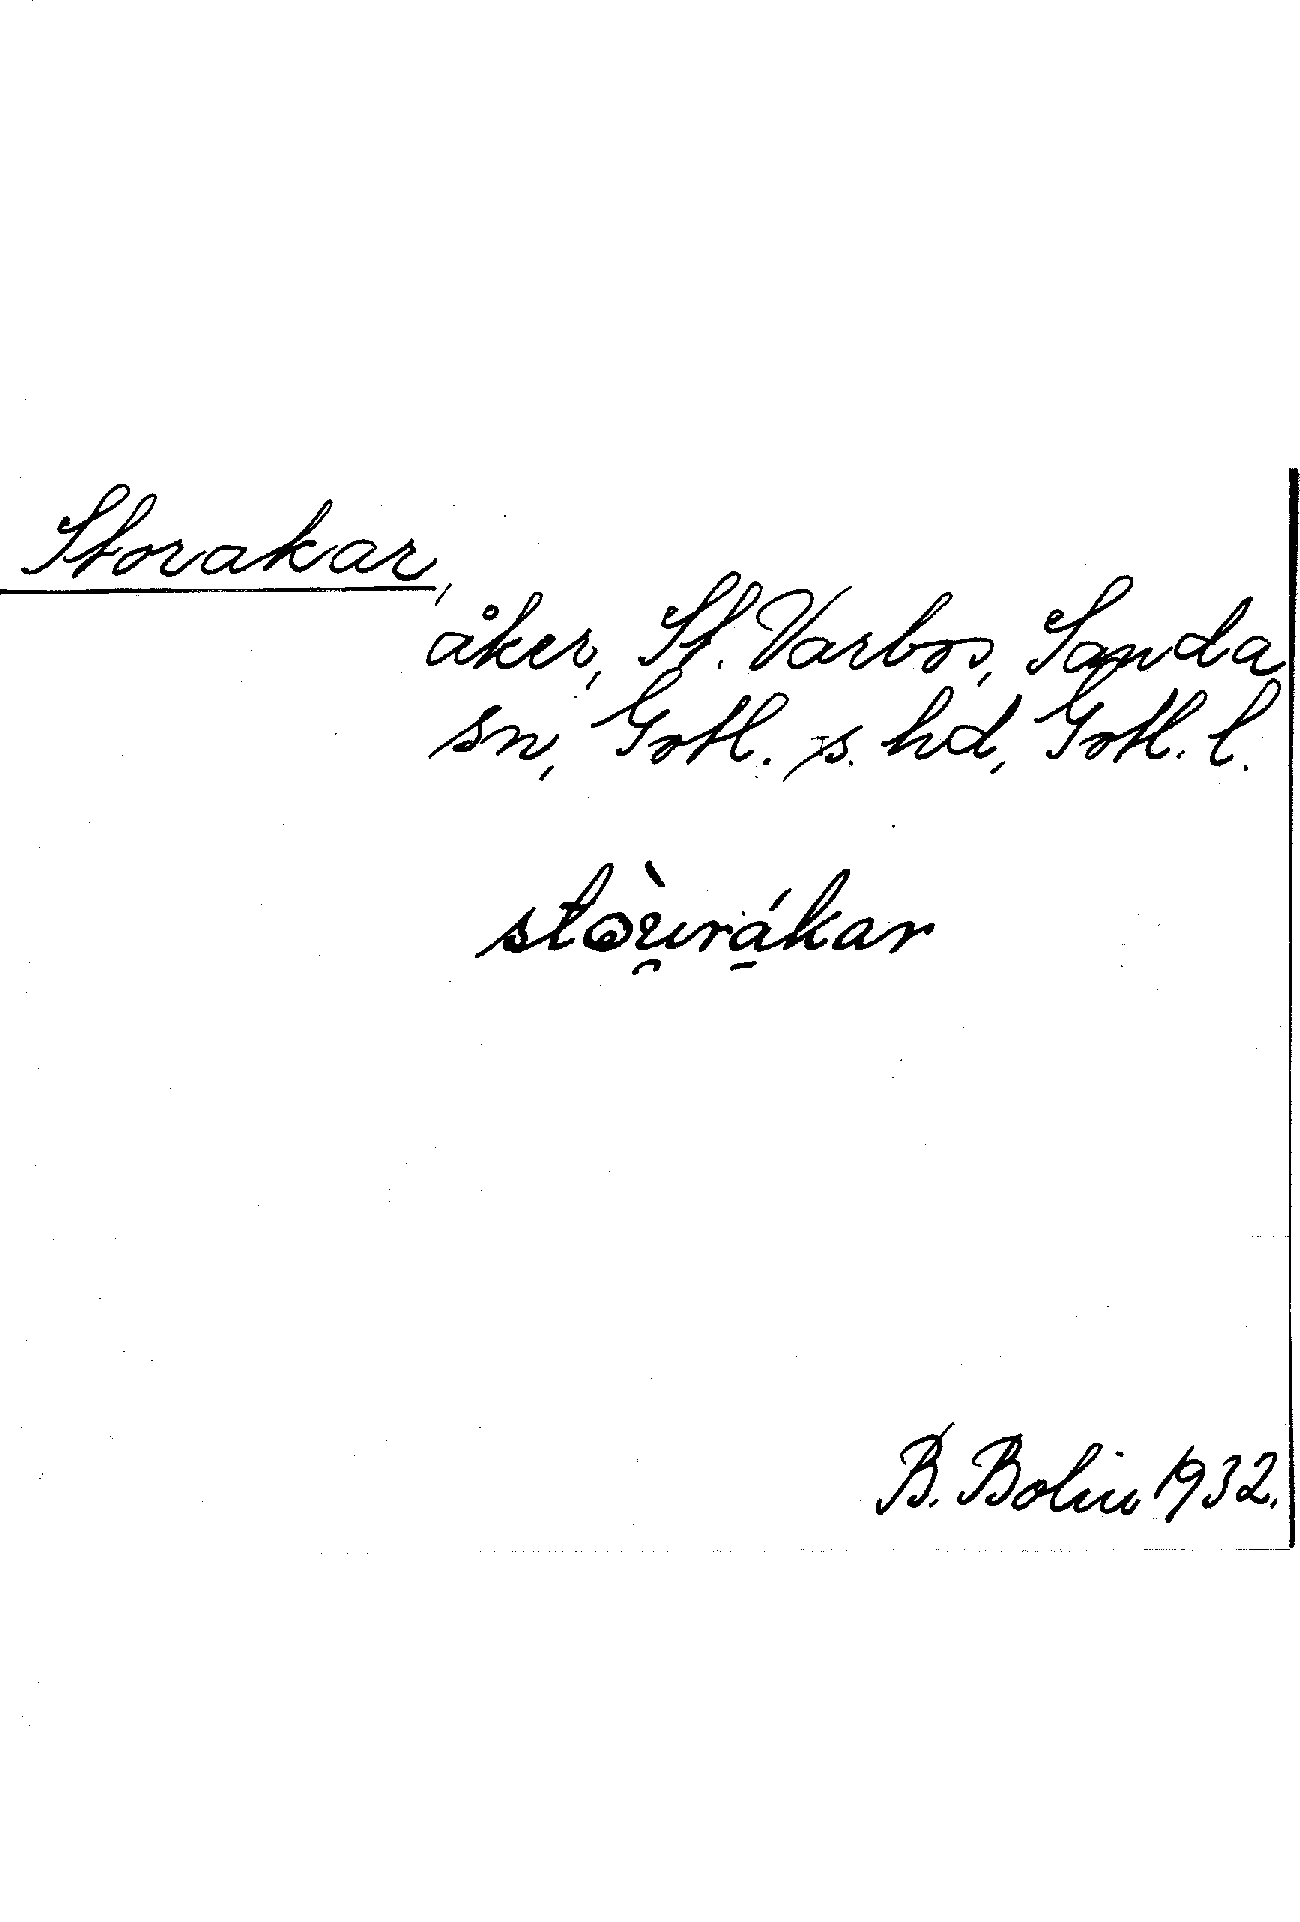 Storakar,
åker, St. Varbos, Sanda
sn, Gotl. s. hd, Gotl. l.
stòu̯rá̠kar
B. Bolin 1932.